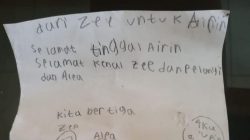 dari Zee untuk Airin
Selamat tinggal Airin
Selamat kenal Zee dan Pelangi
dan Alea
kita bertiga
Zee Alea
Aku